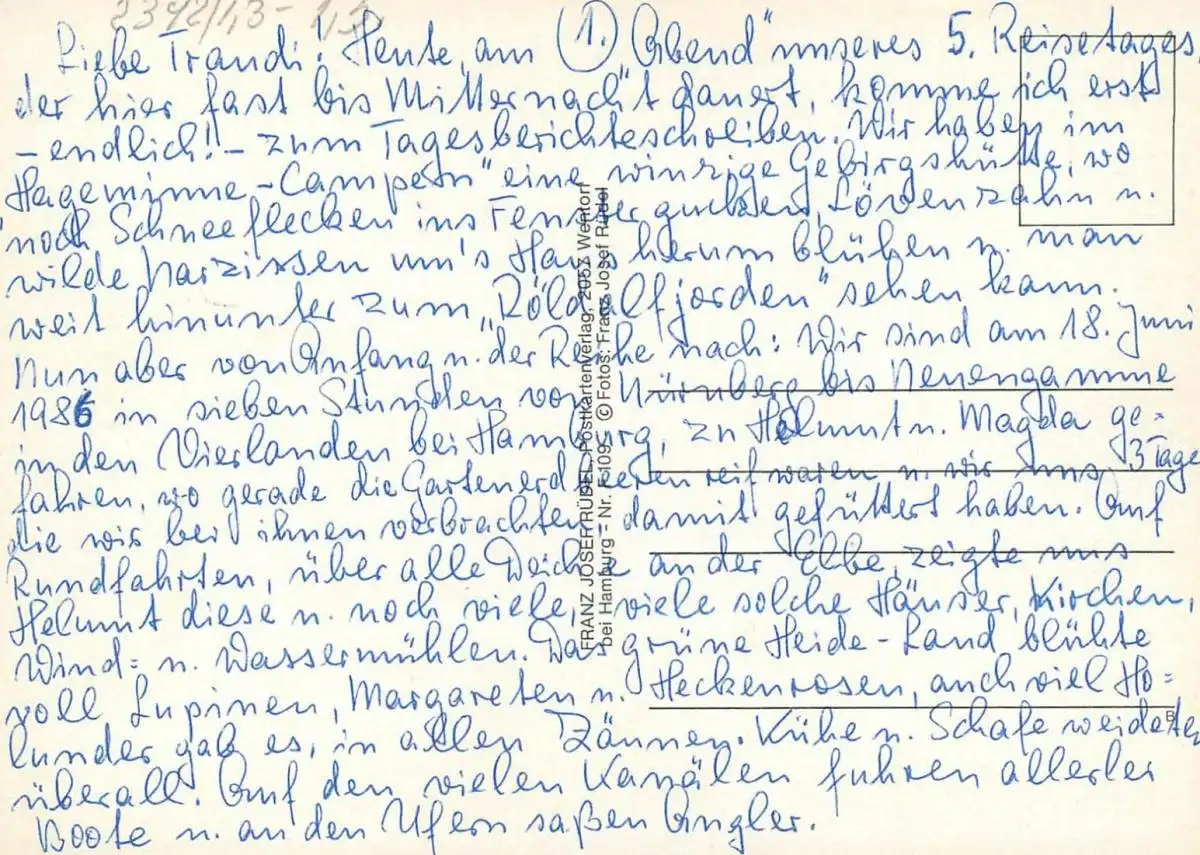 2392/1,3- 1,5
Liebe Traudi! Heute, am (1.) "Abend" unseres 5. Reisetages,
der hier fast bis Mitternacht dauert, komme ich erst
- endlich! - zum Tagesberichteschreiben. Wir haben im
"Hageminne-Campern" eine winzige Gebirgshütte, wo
noch Schneeflecken ins Fenster gucken, Lövenzahn u.
wilde Narzissen um's Haus herum blühen u. man
weit hinunter zum "Röldalfjorden" sehen kann.
Nun aber von Anfang u. der Reihe nach: Wir sind am 18. Juni
1986 in sieben Stunden von Nürnberg bis Neuengamme
in den Vierlanden bei Hamburg, zu Helmut u. Magda ge=
fahren, wo gerade die Gartenerdbeeren reif waren u. wir uns, 3 Tage
die wir bei ihnen verbrachten, damit gefüttert haben. Auf
Rundfahrten, über alle Deiche an der Elbe, zeigte uns
Helmut diese u. noch viele, viele solche Häuser, Kirchen,
Wind= u. Wassermühlen. Das grüne Heide-Land blühte
voll Lupinen, Margareten u. Heckenrosen, auch viel Ho=
lunder gab es, in allen Zäunen. Kühe u. Schafe weideten
überall. Auf den vielen Kanälen fuhren allerlei
Boote u. an den Ufern saßen Angler.
FRANZ JOSEF RÜDEL, Postkartenverlag, 2057 Wentorf
bei Hamburg - Nr. F 5109S © Fotos: Franz Josef Rüdel